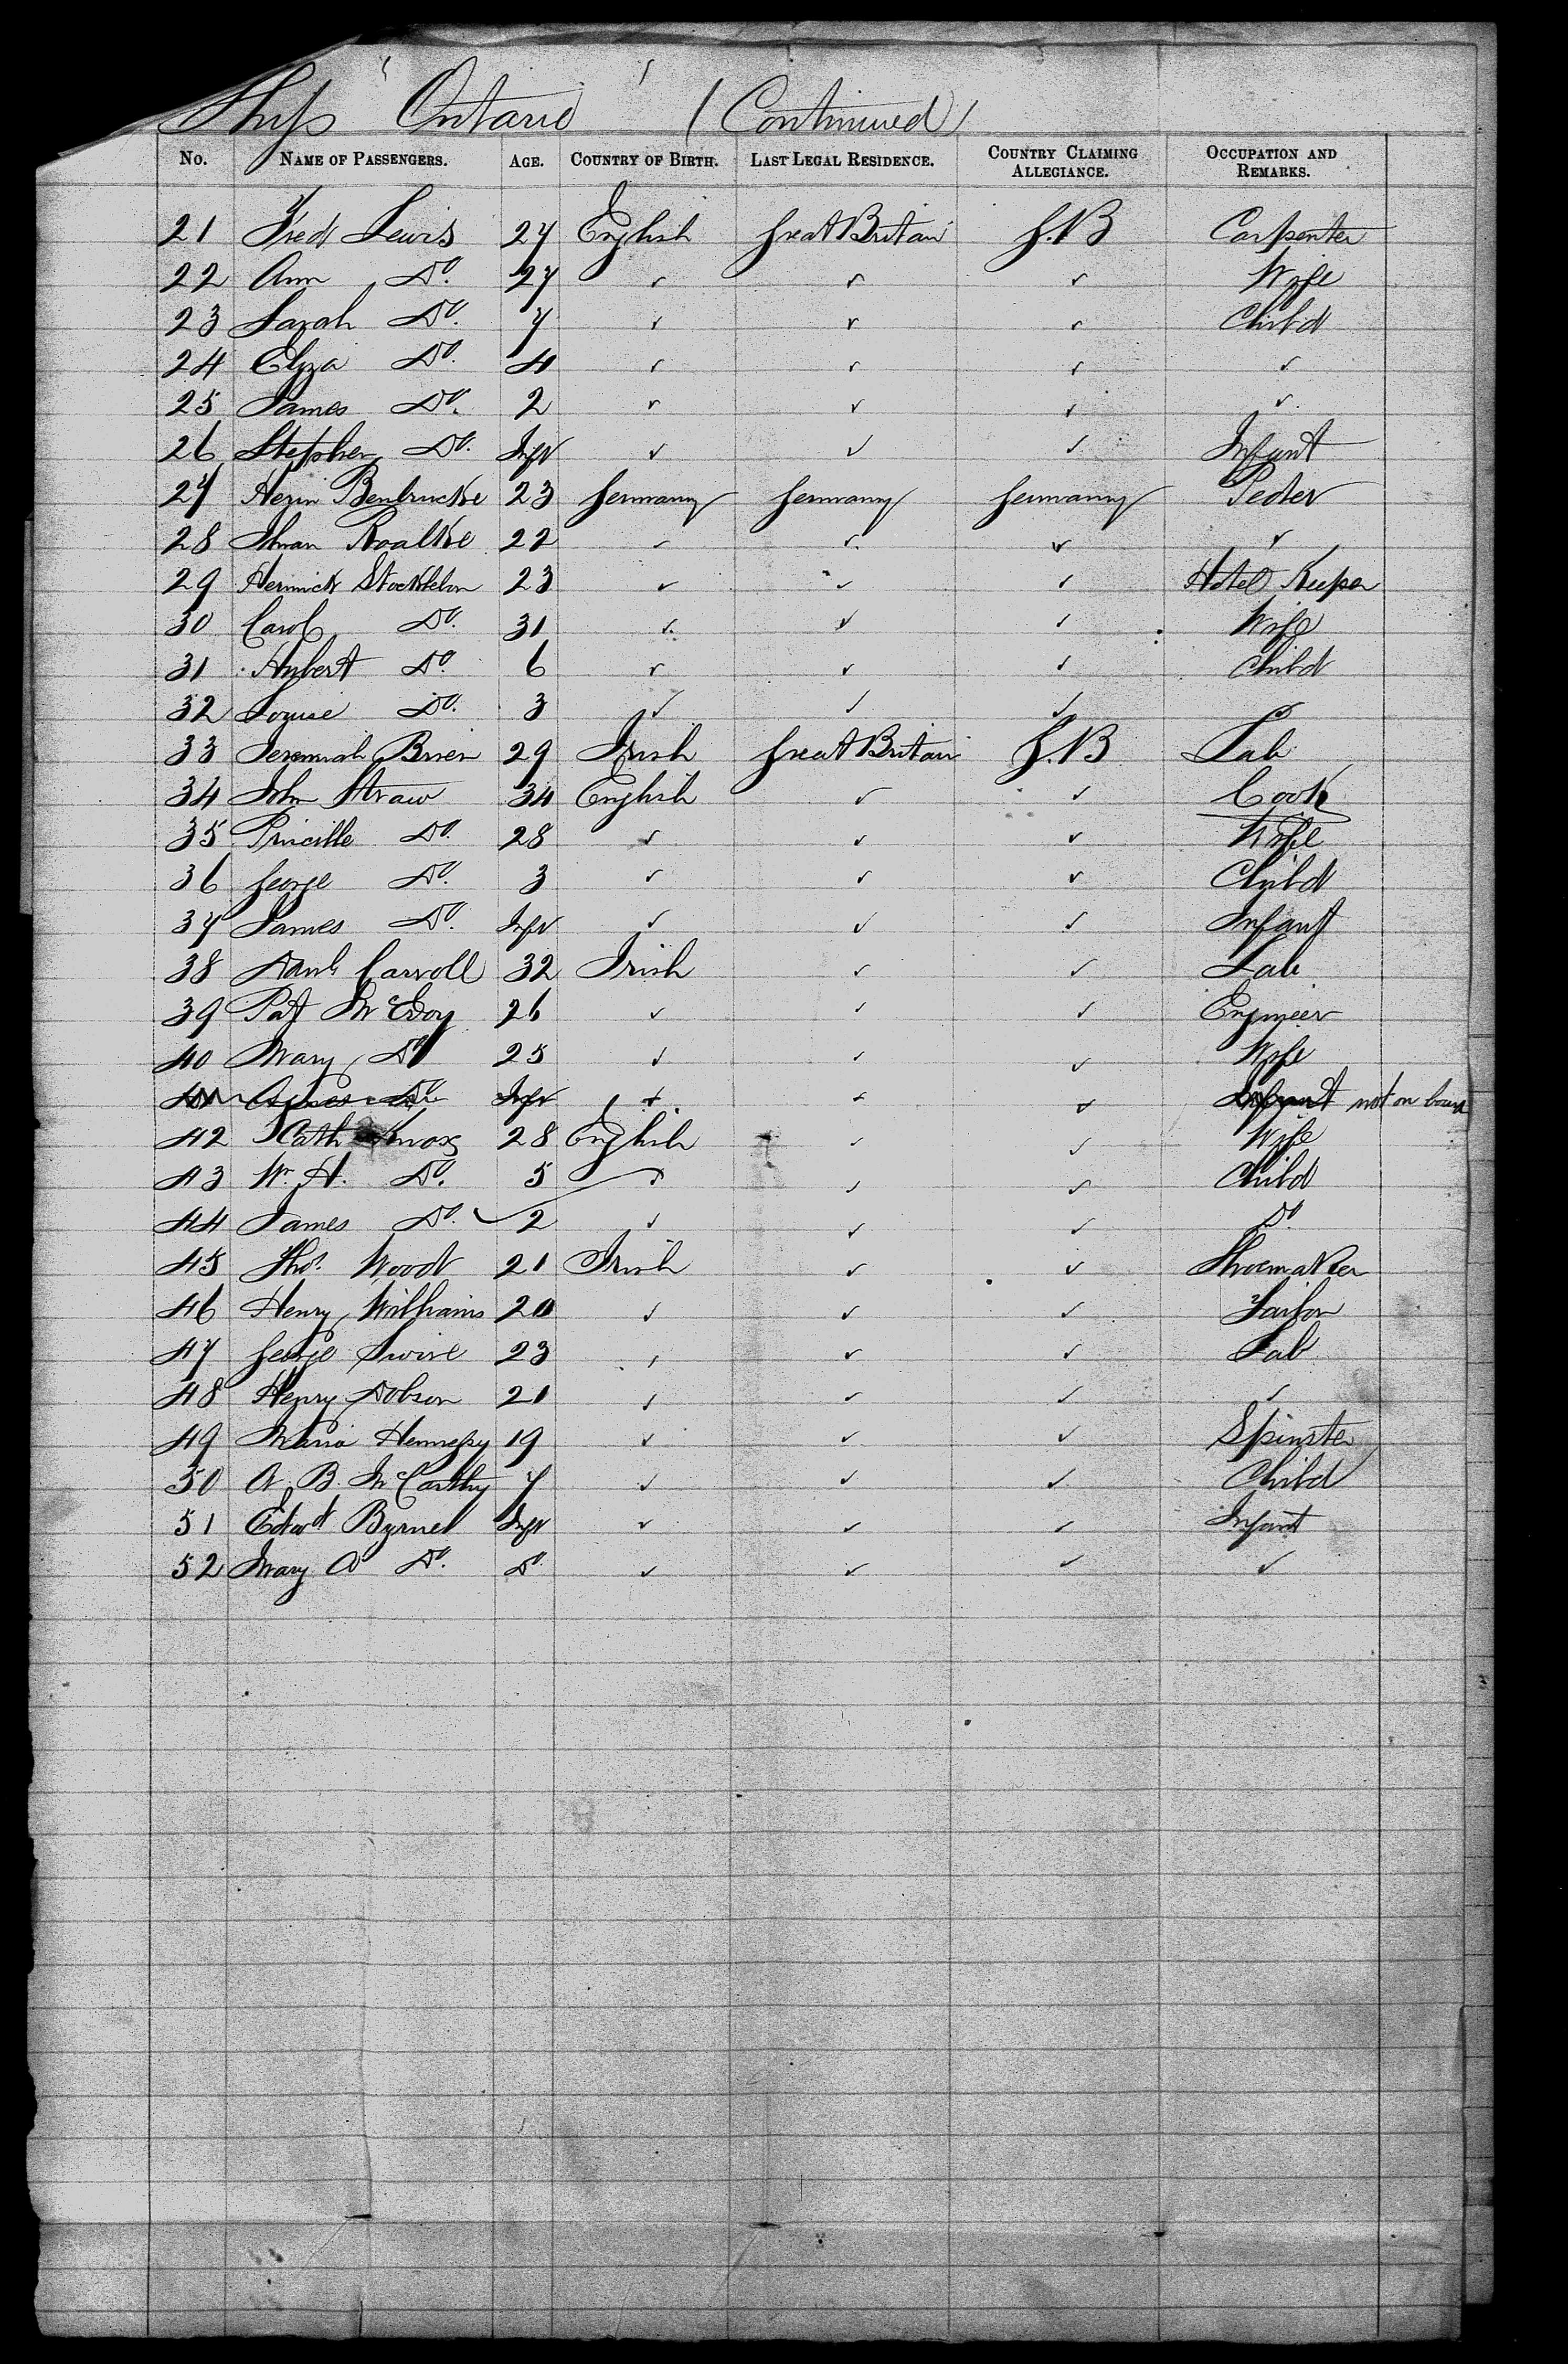 Ship Ontario (Continued)
No. NAME OF PASSENGERS. AGE. COUNTRY OF BIRTH. LAST LEGAL RESIDENCE. COUNTRY CLAIMING ALLEGIANCE. OCCUPATION AND REMARKS.
21 Fred Lewis 27 English Great Britain G.B Carpenter
22 Ann Do. 27 ✓ ✓ ✓ Wife
23 Sarah Do. 7 ✓ ✓ ✓ Child
24 Eliza Do. 4 ✓ ✓ ✓ ✓
25 James Do. 2 ✓ ✓ ✓ ✓
26 Stephen Do. Inft ✓ ✓ ✓ Infant
27 Benbrucke 23 Germany Germany Germany Pedler
28 22 ✓ ✓ ✓ ✓
29 23 ✓ ✓ ✓ Hotel Keeper
30 Do. 31 ✓ ✓ ✓ Wife
31 Hubert Do. 6 ✓ ✓ ✓ Child
32 Louise Do. 3 ✓ ✓ ✓
33 Jeremiah Brien 29 Irish Great Britain G.B Lab
34 John Straw 34 English ✓ ✓ Cook
35 Princille Do. 28 ✓ ✓ ✓ Wife
36 George Do. 3 ✓ ✓ ✓ Child
37 James Do. Inft ✓ ✓ ✓ Infant
38 Danl Carroll 32 Irish ✓ ✓ Lab
39 Pat McEvoy 26 ✓ ✓ ✓ Engineer
40 Mary Do 25 ✓ ✓ ✓ Wife
41 Agnes Do Inft ✓ ✓ ✓ Infant not on board
42 Cath Knox 28 English ✓ ✓ Wife
43 Wm. H. Do. 5 ✓ ✓ ✓ Child
44 James Do. 2 ✓ ✓ ✓ Do.
45 Thos. Wood 21 Irish ✓ ✓ Shoemaker
46 Henry Williams 20 ✓ ✓ ✓ Tailor
47 George 23 ✓ ✓ ✓ Lab
48 Henry Dobson 21 ✓ ✓ ✓ ✓
49 Maria Hennesy 19 ✓ ✓ ✓ Spinster
50 A. B. McCarthy 7 ✓ ✓ ✓ Child
51 Edwd Byrnes Inft ✓ ✓ ✓ Infant
52 Mary A Do. Do. ✓ ✓ ✓ ✓